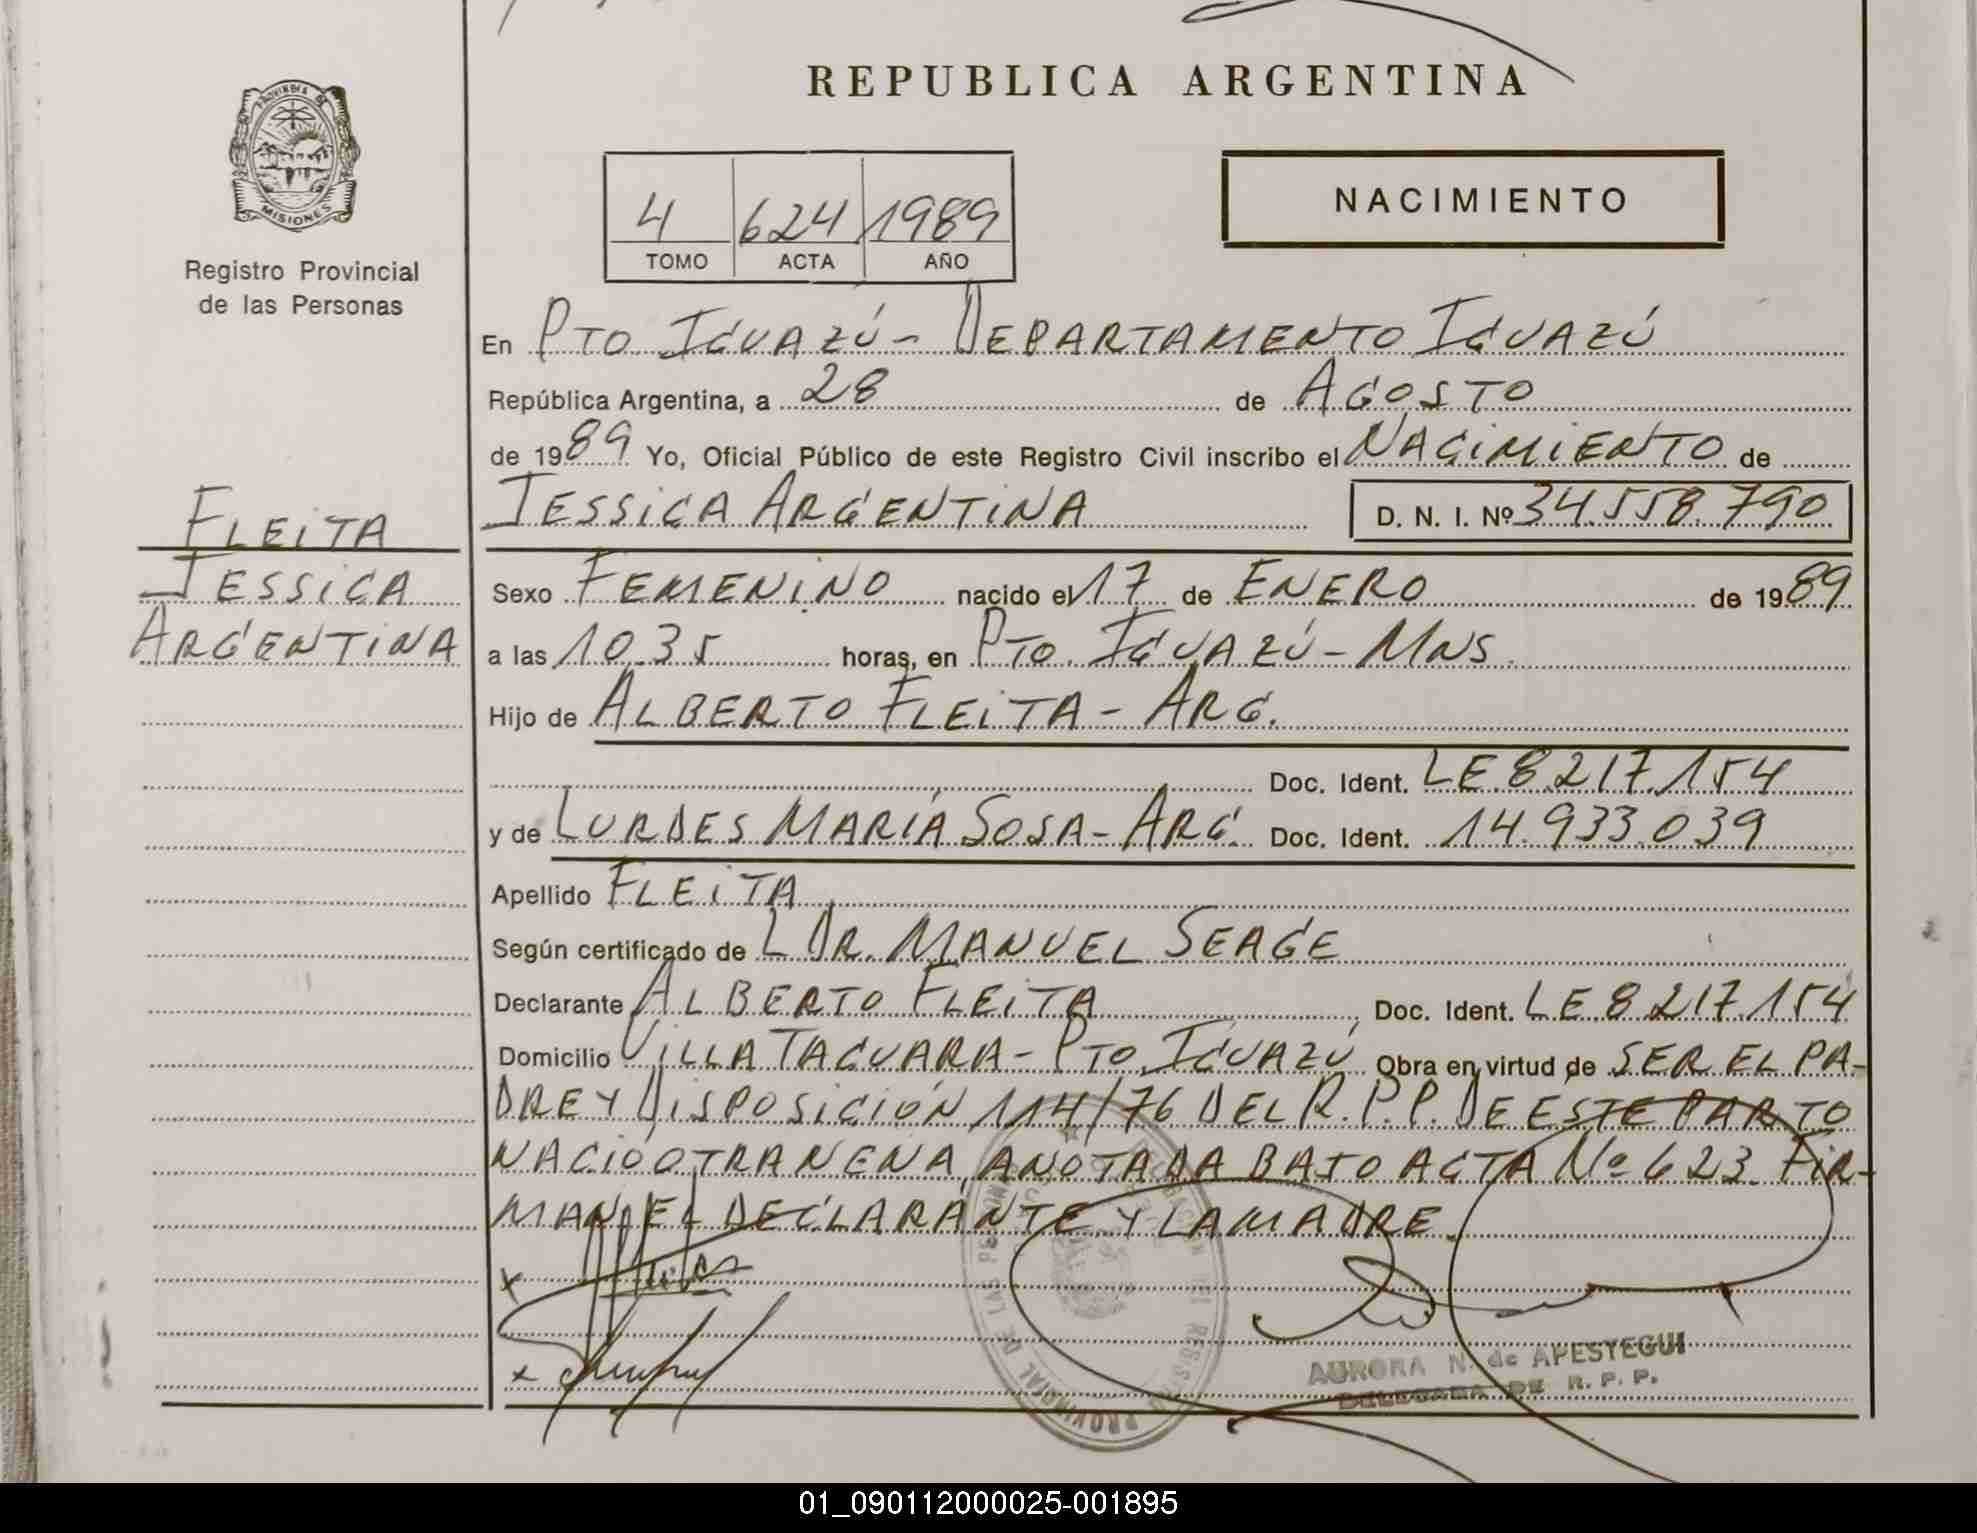 REPUBLICA ARGENTINA
PROVINCIA DE
MISIONES
Registro Provincial
de las Personas
4 624 1989
TOMO ACTA AÑO
NACIMIENTO
En PTO IGUAZÚ - DEPARTAMENTO IGUAZÚ
República Argentina, a 28 de AGOSTO
de 1989 Yo, Oficial Público de este Registro Civil inscribo el NACIMIENTO de
JESSICA ARGENTINA D. N. I. Nº 34.558.790
FLEITA
JESSICA
ARGENTINA
Sexo FEMENINO nacido el 17 de ENERO de 1989
a las 10.35 horas, en PTO. IGUAZÚ - MNS.
Hijo de ALBERTO FLEITA - ARG.
Doc. Ident. LE 8.217.154
y de LURDES MARÍA SOSA - ARG. Doc. Ident. 14.933.039
Apellido FLEITA
Según certificado de L DR. MANUEL SEAGE
Declarante ALBERTO FLEITA Doc. Ident. LE 8.217.154
Domicilio VILLA TACUARA - PTO. IGUAZÚ Obra en virtud de SER EL PA-
DRE Y DISPOSICIÓN 114/76 DEL R.P.P. DE ESTE PARTO
NACIO OTRA NENA, ANOTADA BAJO ACTA Nº 623. FIR-
MAN EL DECLARANTE Y LA MADRE.
x
x
PROVINCIAL DE LAS
AURORA N. de APESTEGUI
DELEGADA DE R. P. P.
01_090112000025-001895